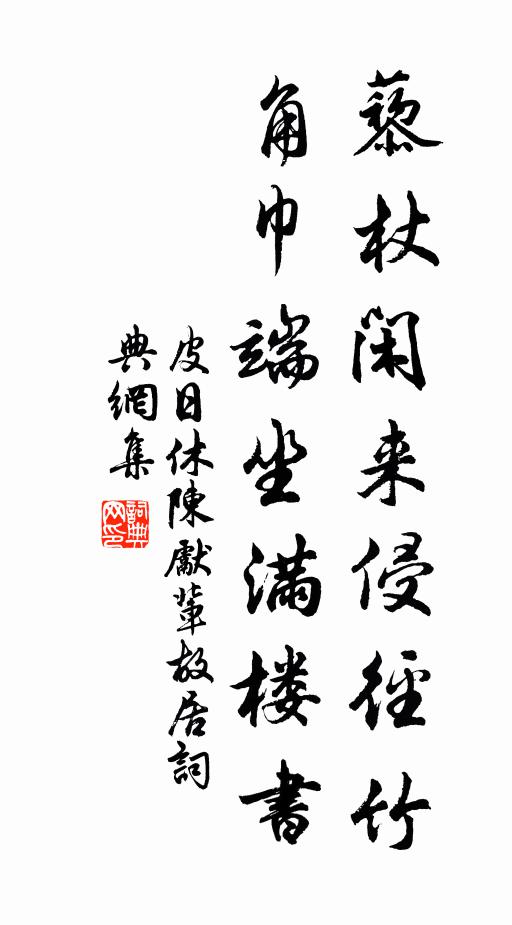 藜杖閑来侵徑竹
角巾端坐滿樓書
皮日休陳獻輩故居詞
典網集
詞典
网印